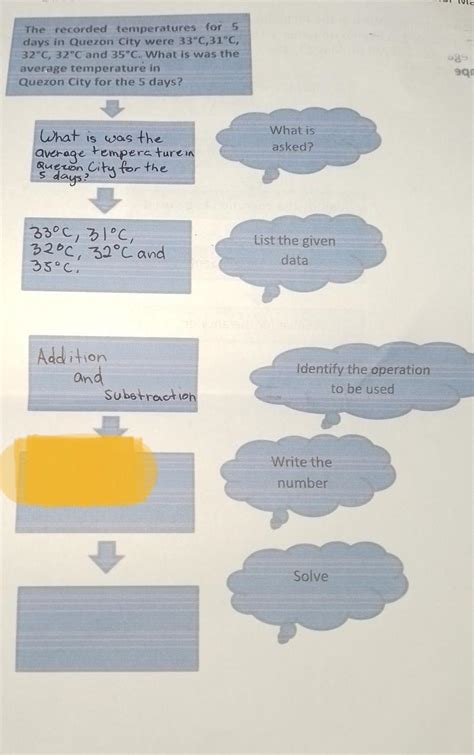 The recorded temperatures for 5
days in Quezon City were 33°C,31°C,
32°C, 32°C and 35°C. What is was the
average temperature in
Quezon City for the 5 days?
What is was the
average temperature in
Quezon City for the
5 days?
What is
asked?
33°C, 31°C,
32°C, 32°C and
35°C.
List the given
data
Addition
and
Substraction
Identify the operation
to be used
Write the
number
Solve